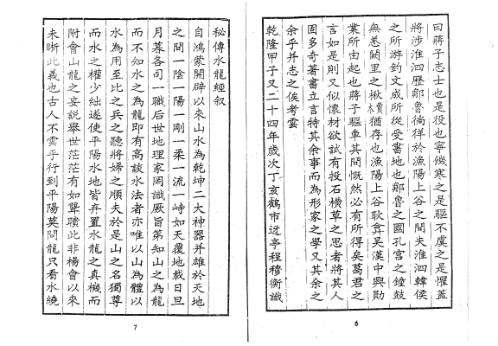 曰蔣子志士也是役也寧饑寒之是驅不虞之是懼蓋
將涉淮泗歷鄒魯徜徉於漁陽上谷之間夫淮泗韓侯
之所游釣文成所從受書地也鄒魯之國孔宮之鐘鼓
無恙闕里之楸檟猶存也漁陽上谷耿弇吳漢中興勛
業所由起也蔣子驅車其間慨然必有所得矣葛君之
言如是則又似懷材欲試有投石橫草之思者將其人
固多奇著書立言特其餘事而為形家之學又其余之
余乎并志之俟考雲
乾隆甲子又二十四年歲次丁亥鶴市迓亭程穆衡識
6
秘傳水龍經叙
自鴻蒙開辟以來山水為乾坤二大神器并雄於天地
之間一陰一陽一剛一柔一流一峙如天覆地載日旦
月暮各司一職后世地理家罔識厥旨第知山之為龍
而不知水之為龍即有高談水法者亦唯以山為體以
水為用至比之兵之聽將婦之順夫於是山之名獨尊
而水之權少絀遂使平陽水地皆弃置水龍之真機而
附會山龍之妄說舉世茫茫有如聾聵此非楊會以來
未晰此義也古人不雲乎行到平陽莫問龍只看水繞
7